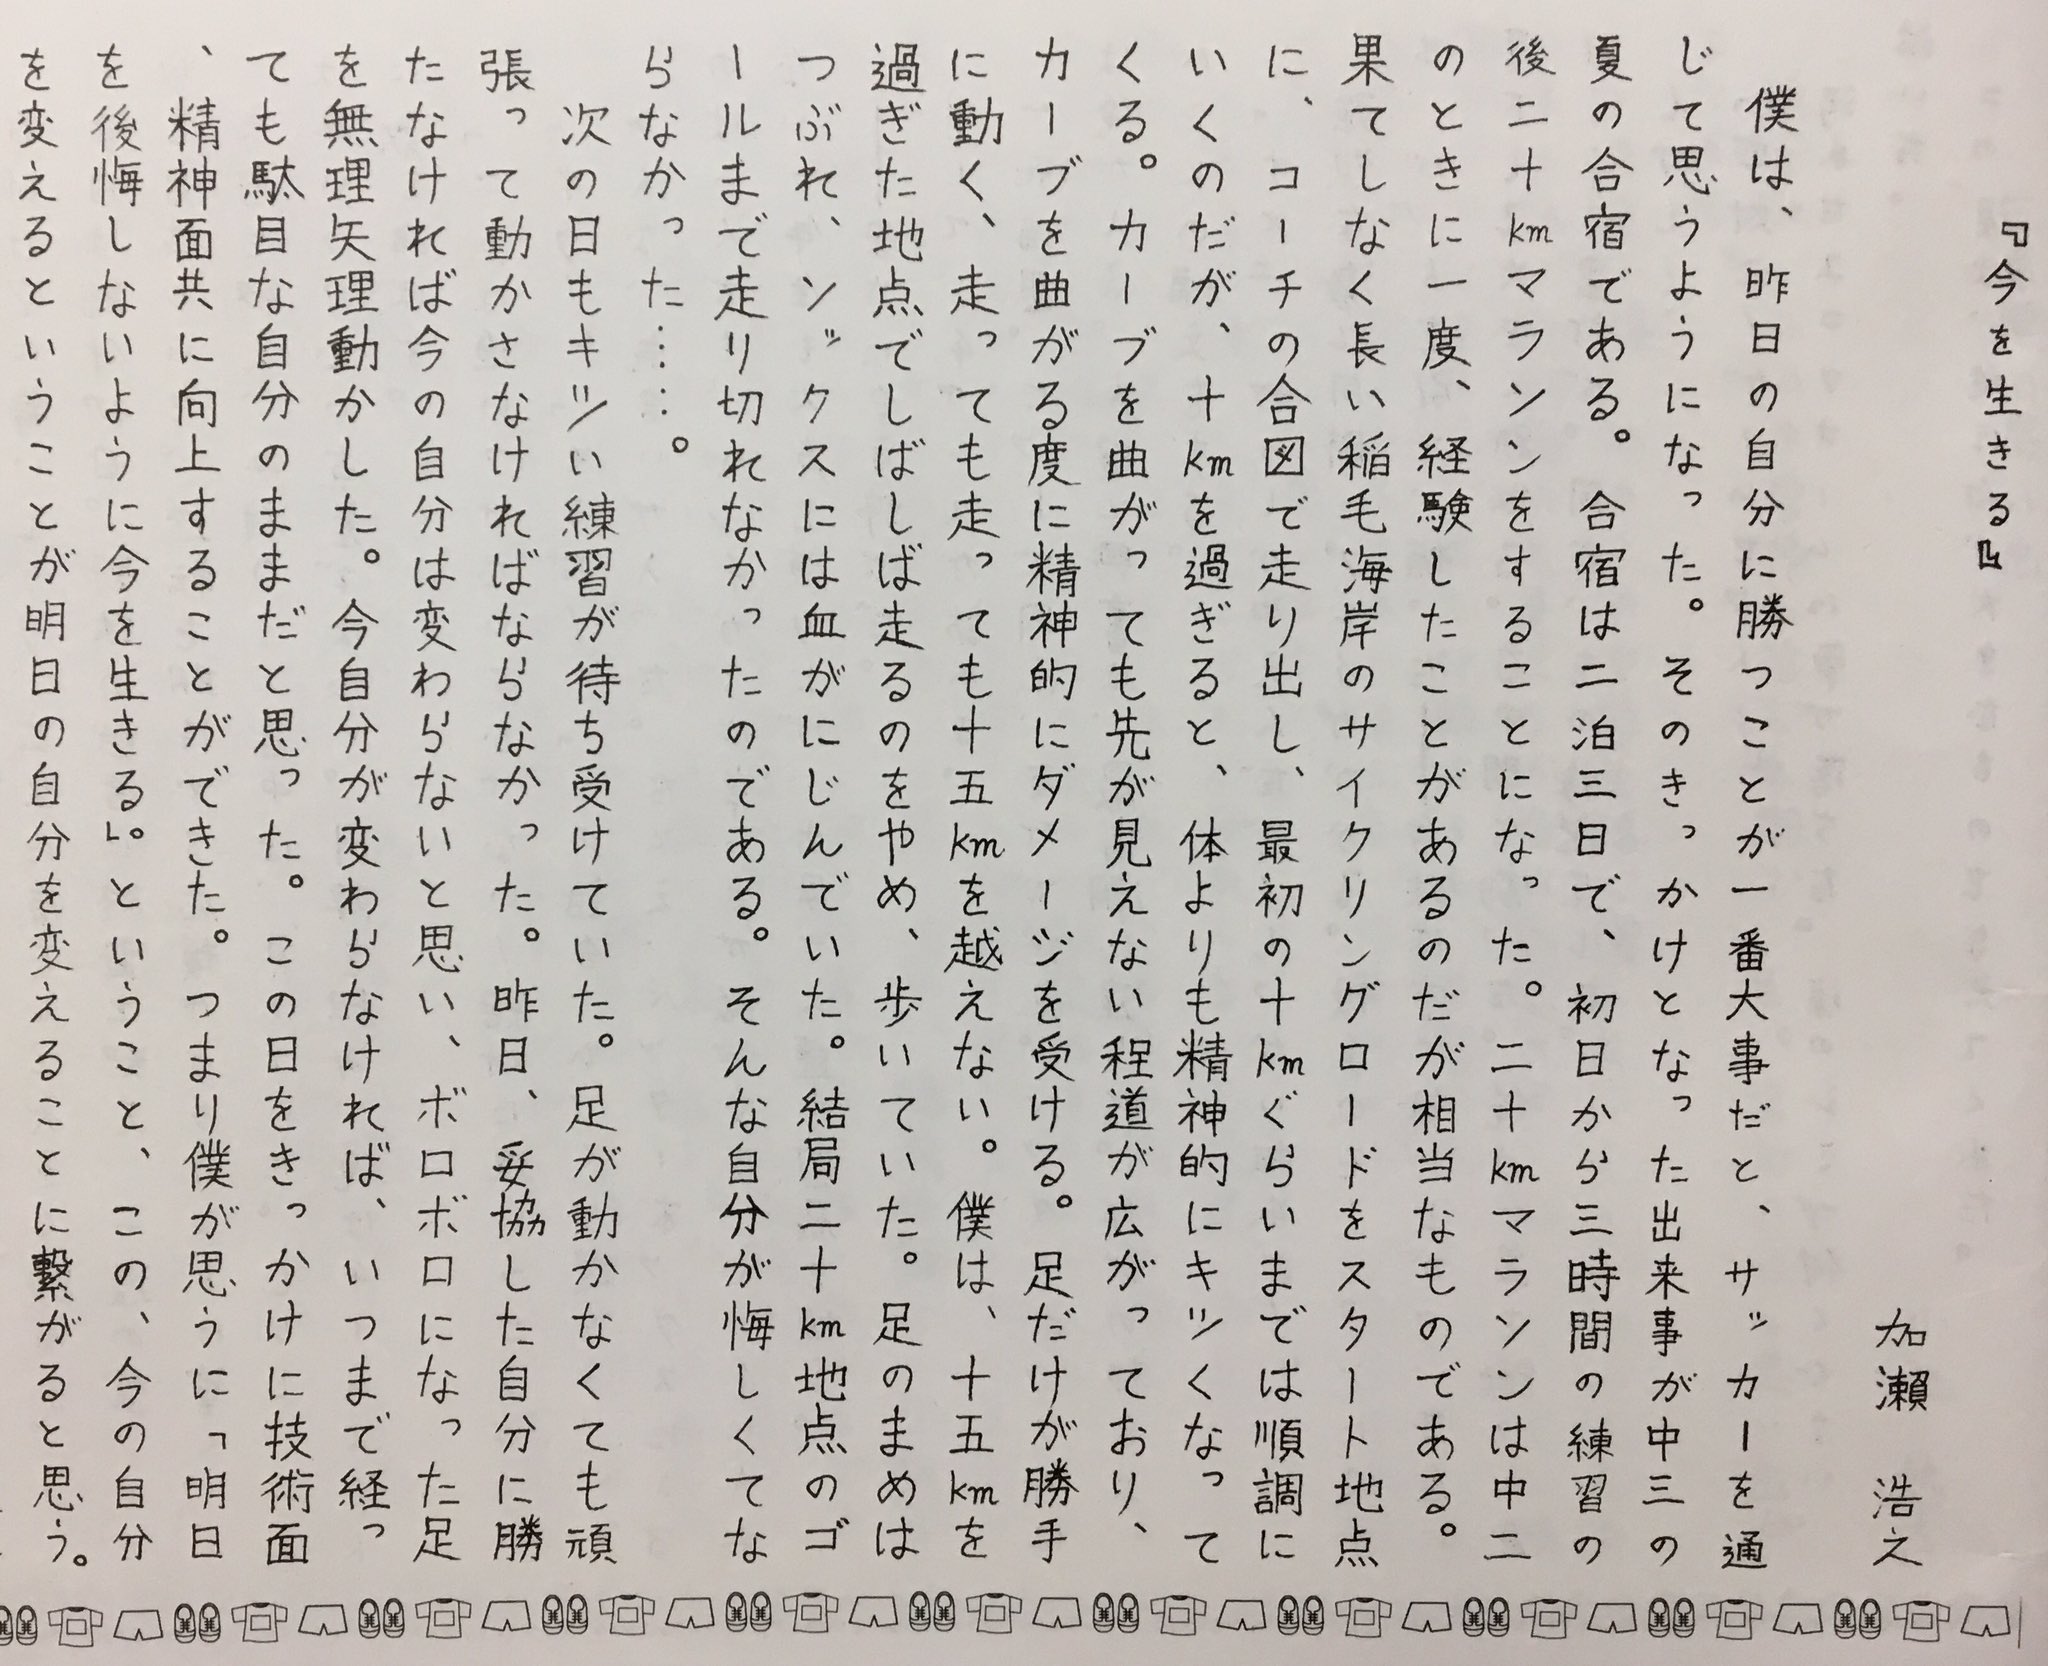 『今を生きる』
加瀬 浩之
僕は、昨日の自分に勝つことが一番大事だと、サッカーを通
じて思うようになった。そのきっかけとなった出来事が中三の
夏の合宿である。合宿は二泊三日で、初日から三時間の練習の
後二十kmマランンをすることになった。二十kmマランンは中二
のときに一度、経験したことがあるのだが相当なものである。
果てしなく長い稲毛海岸のサイクリングロードをスタート地点
に、コーチの合図で走り出し、最初の十kmぐらいまでは順調に
いくのだが、十kmを過ぎると、体よりも精神的にキツくなって
くる。カーブを曲がっても先が見えない程道が広がっており、
カーブを曲がる度に精神的にダメージを受ける。足だけが勝手
に動く、走っても走っても十五kmを越えない。僕は、十五kmを
過ぎた地点でしばしば走るのをやめ、歩いていた。足のまめは
つぶれ、ソックスには血がにじんでいた。結局二十km地点のゴ
ールまで走り切れなかったのである。そんな自分が悔しくてな
らなかった……。
次の日もキツい練習が待ち受けていた。足が動かなくても頑
張って動かさなければならなかった。昨日、妥協した自分に勝
たなければ今の自分は変わらないと思い、ボロボロになった足
を無理矢理動かした。今自分が変わらなければ、いつまで経っ
ても駄目な自分のままだと思った。この日をきっかけに技術面
、精神面共に向上することができた。つまり僕が思うに「明日
を後悔しないように今を生きる」。ということ、この、今の自分
を変えるということが明日の自分を変えることに繋がると思う。